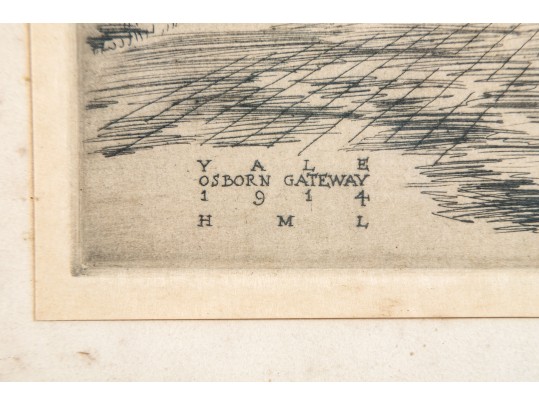 YALE
OSBORN GATEWAY
1914
HML